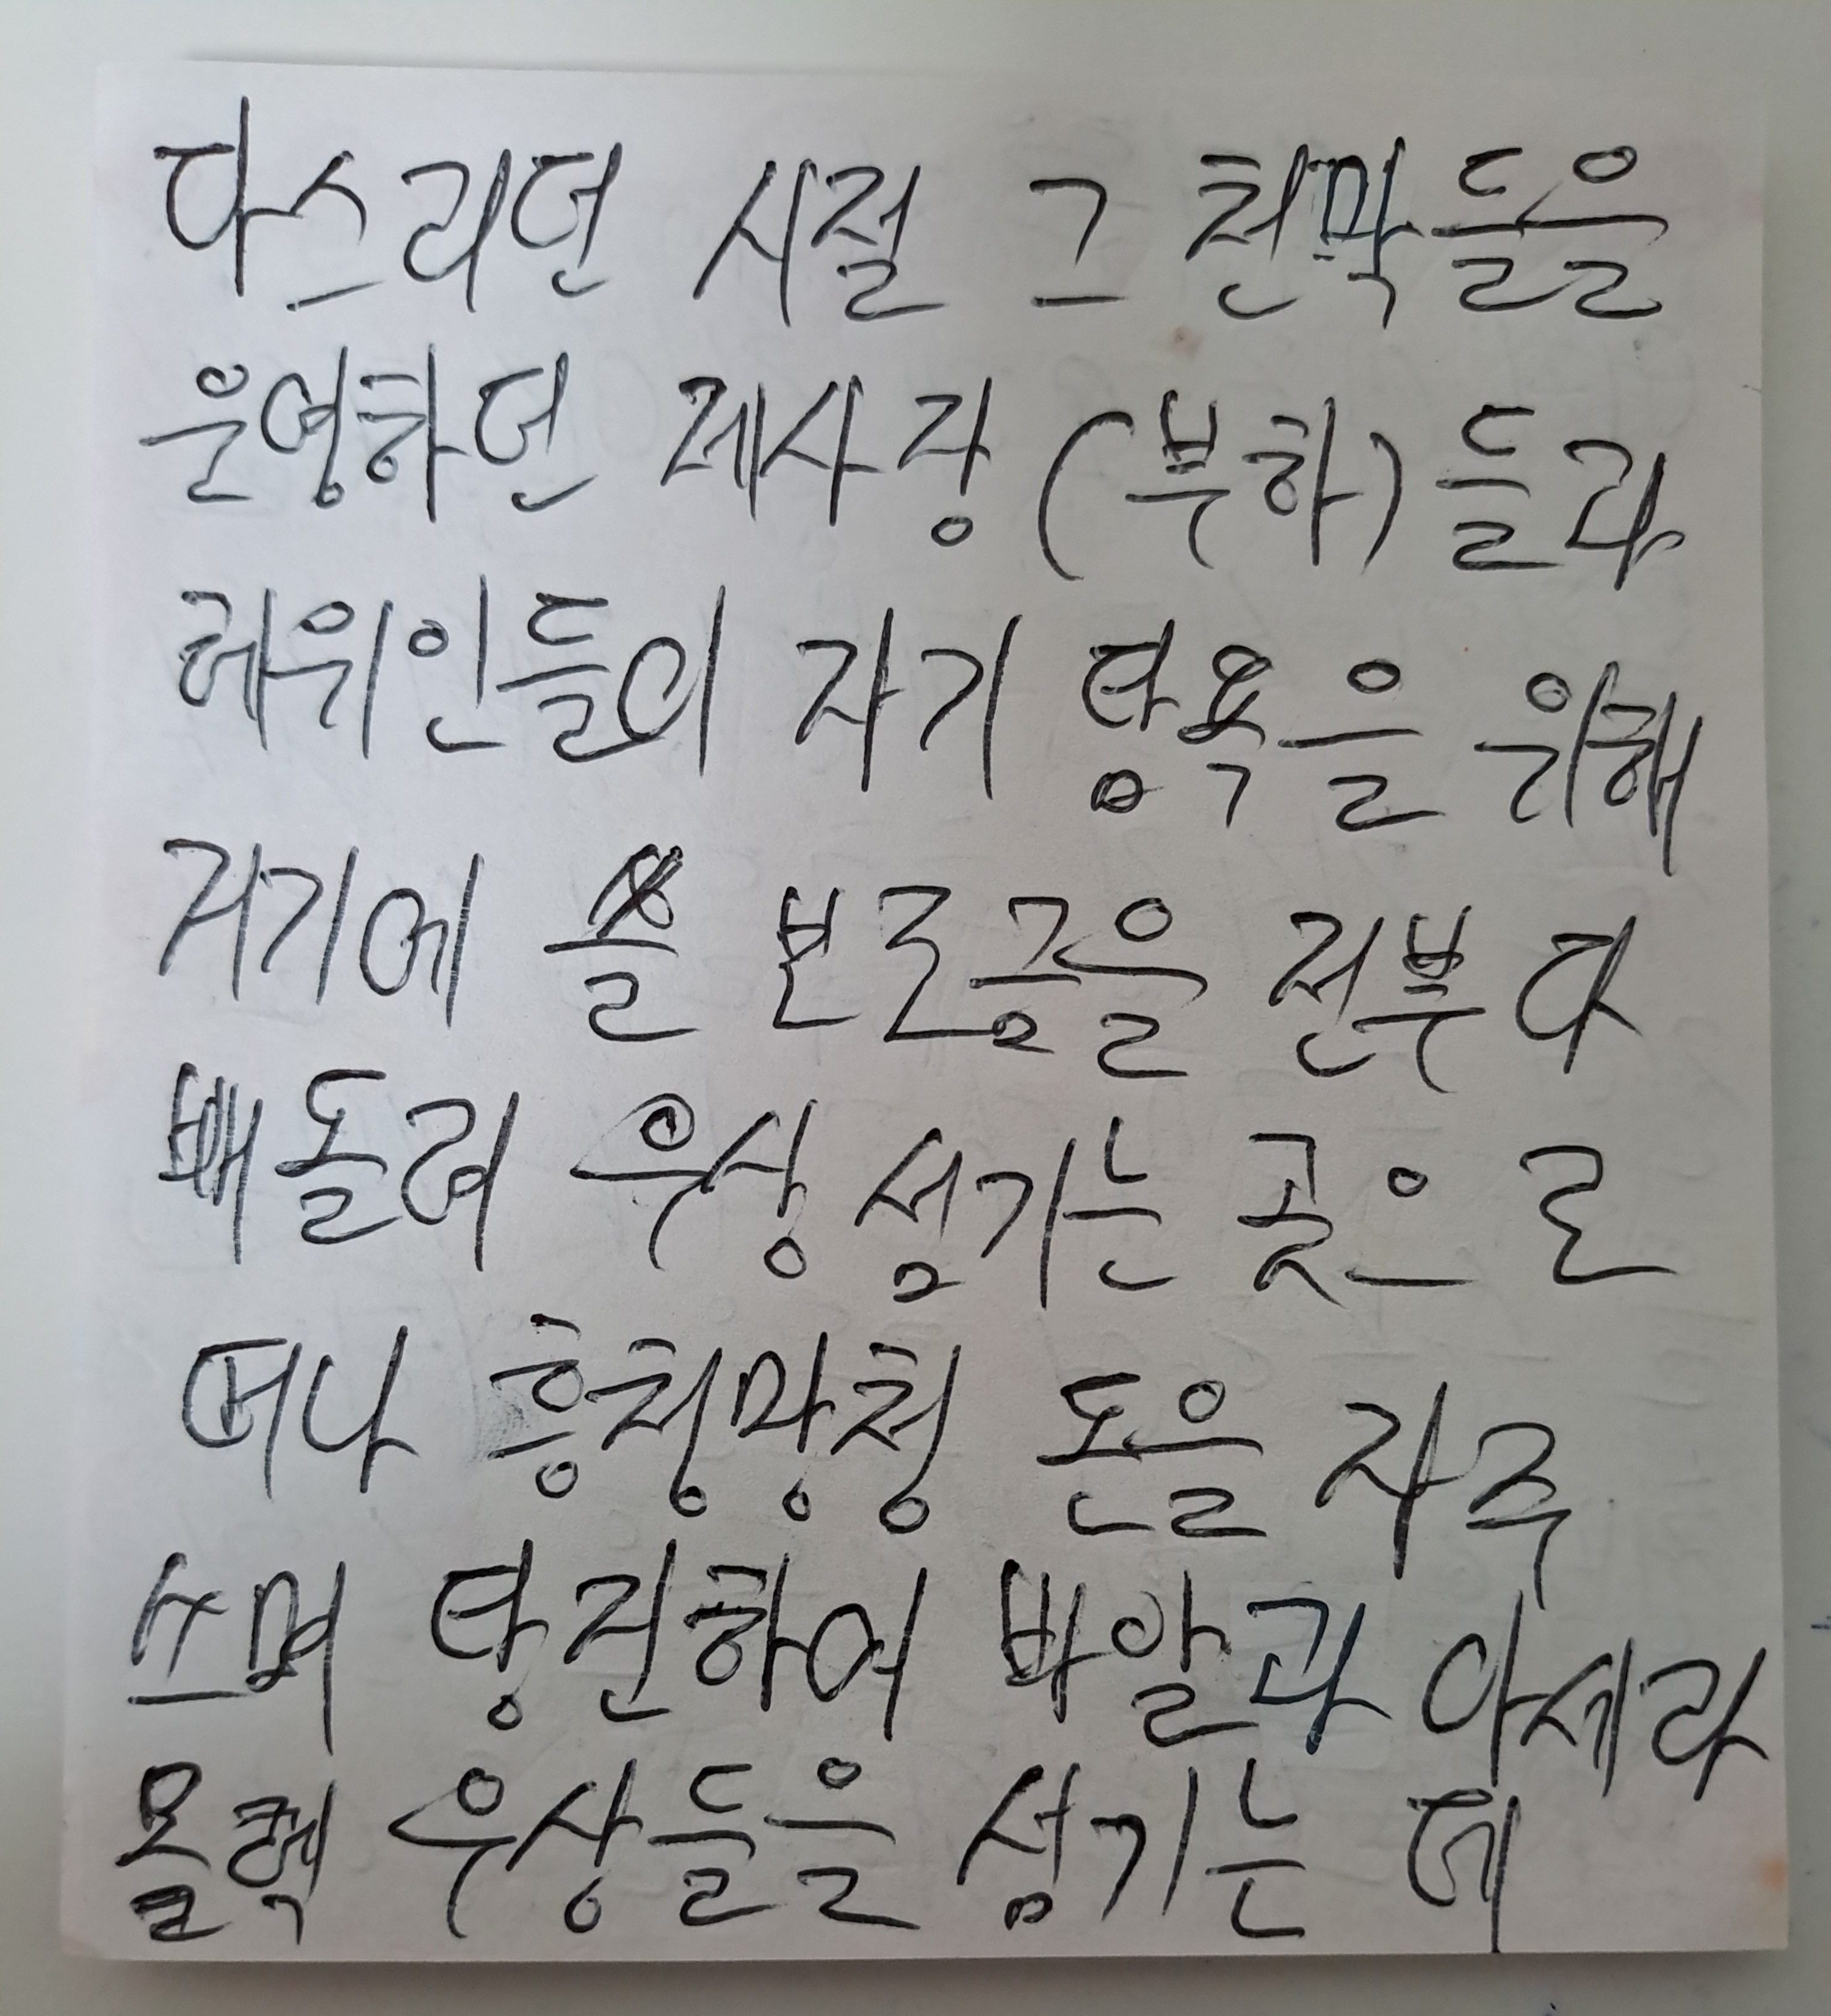 다스리던 시절 그 천막들을
운영하던 제사장(부하)들과
레위인들이 자기 탐욕을 위해
거기에 쓸 보른금을 전부 다
빼돌려 우상 섬기는 곳으로
떠나 흥청망청 돈을 자주
쓰며 탕진하여 바알과 아세라
몰렉 우상들을 섬기는 데